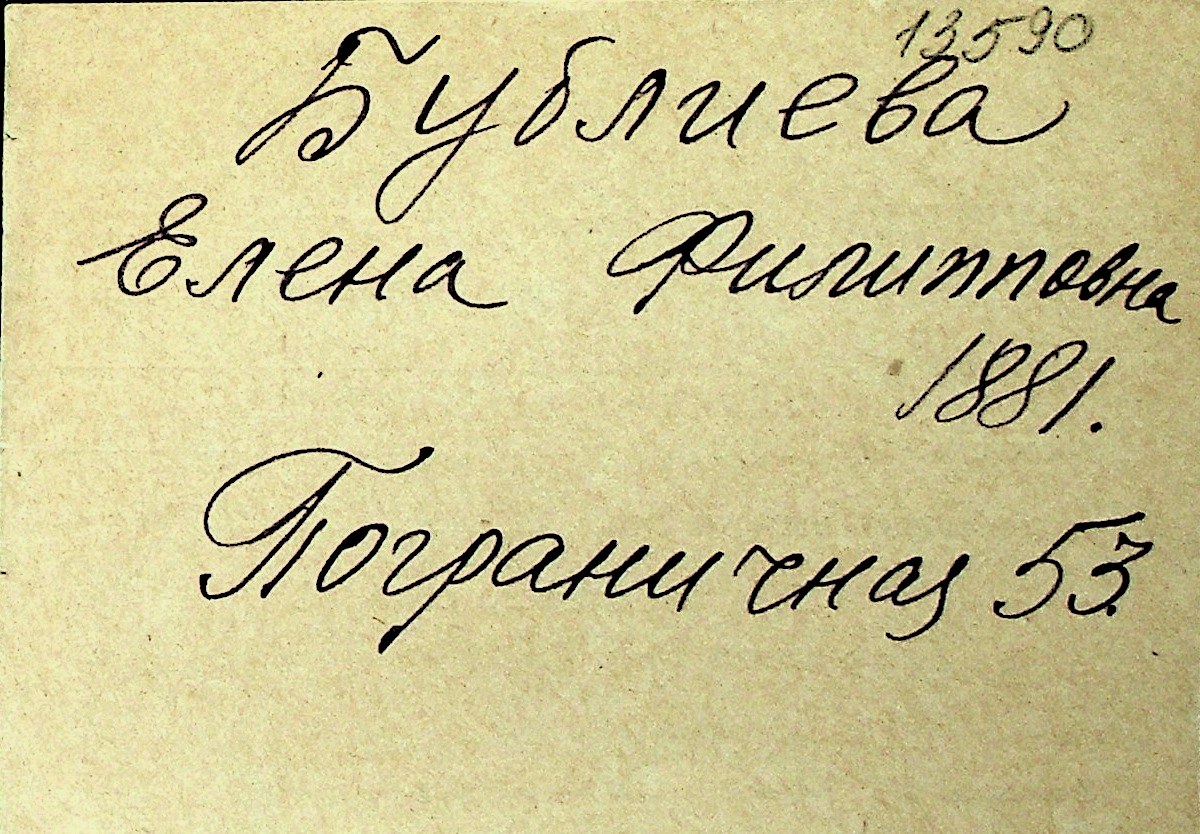 13590
Бублиева
Елена Филипповна
1881.
Пограничная 53.